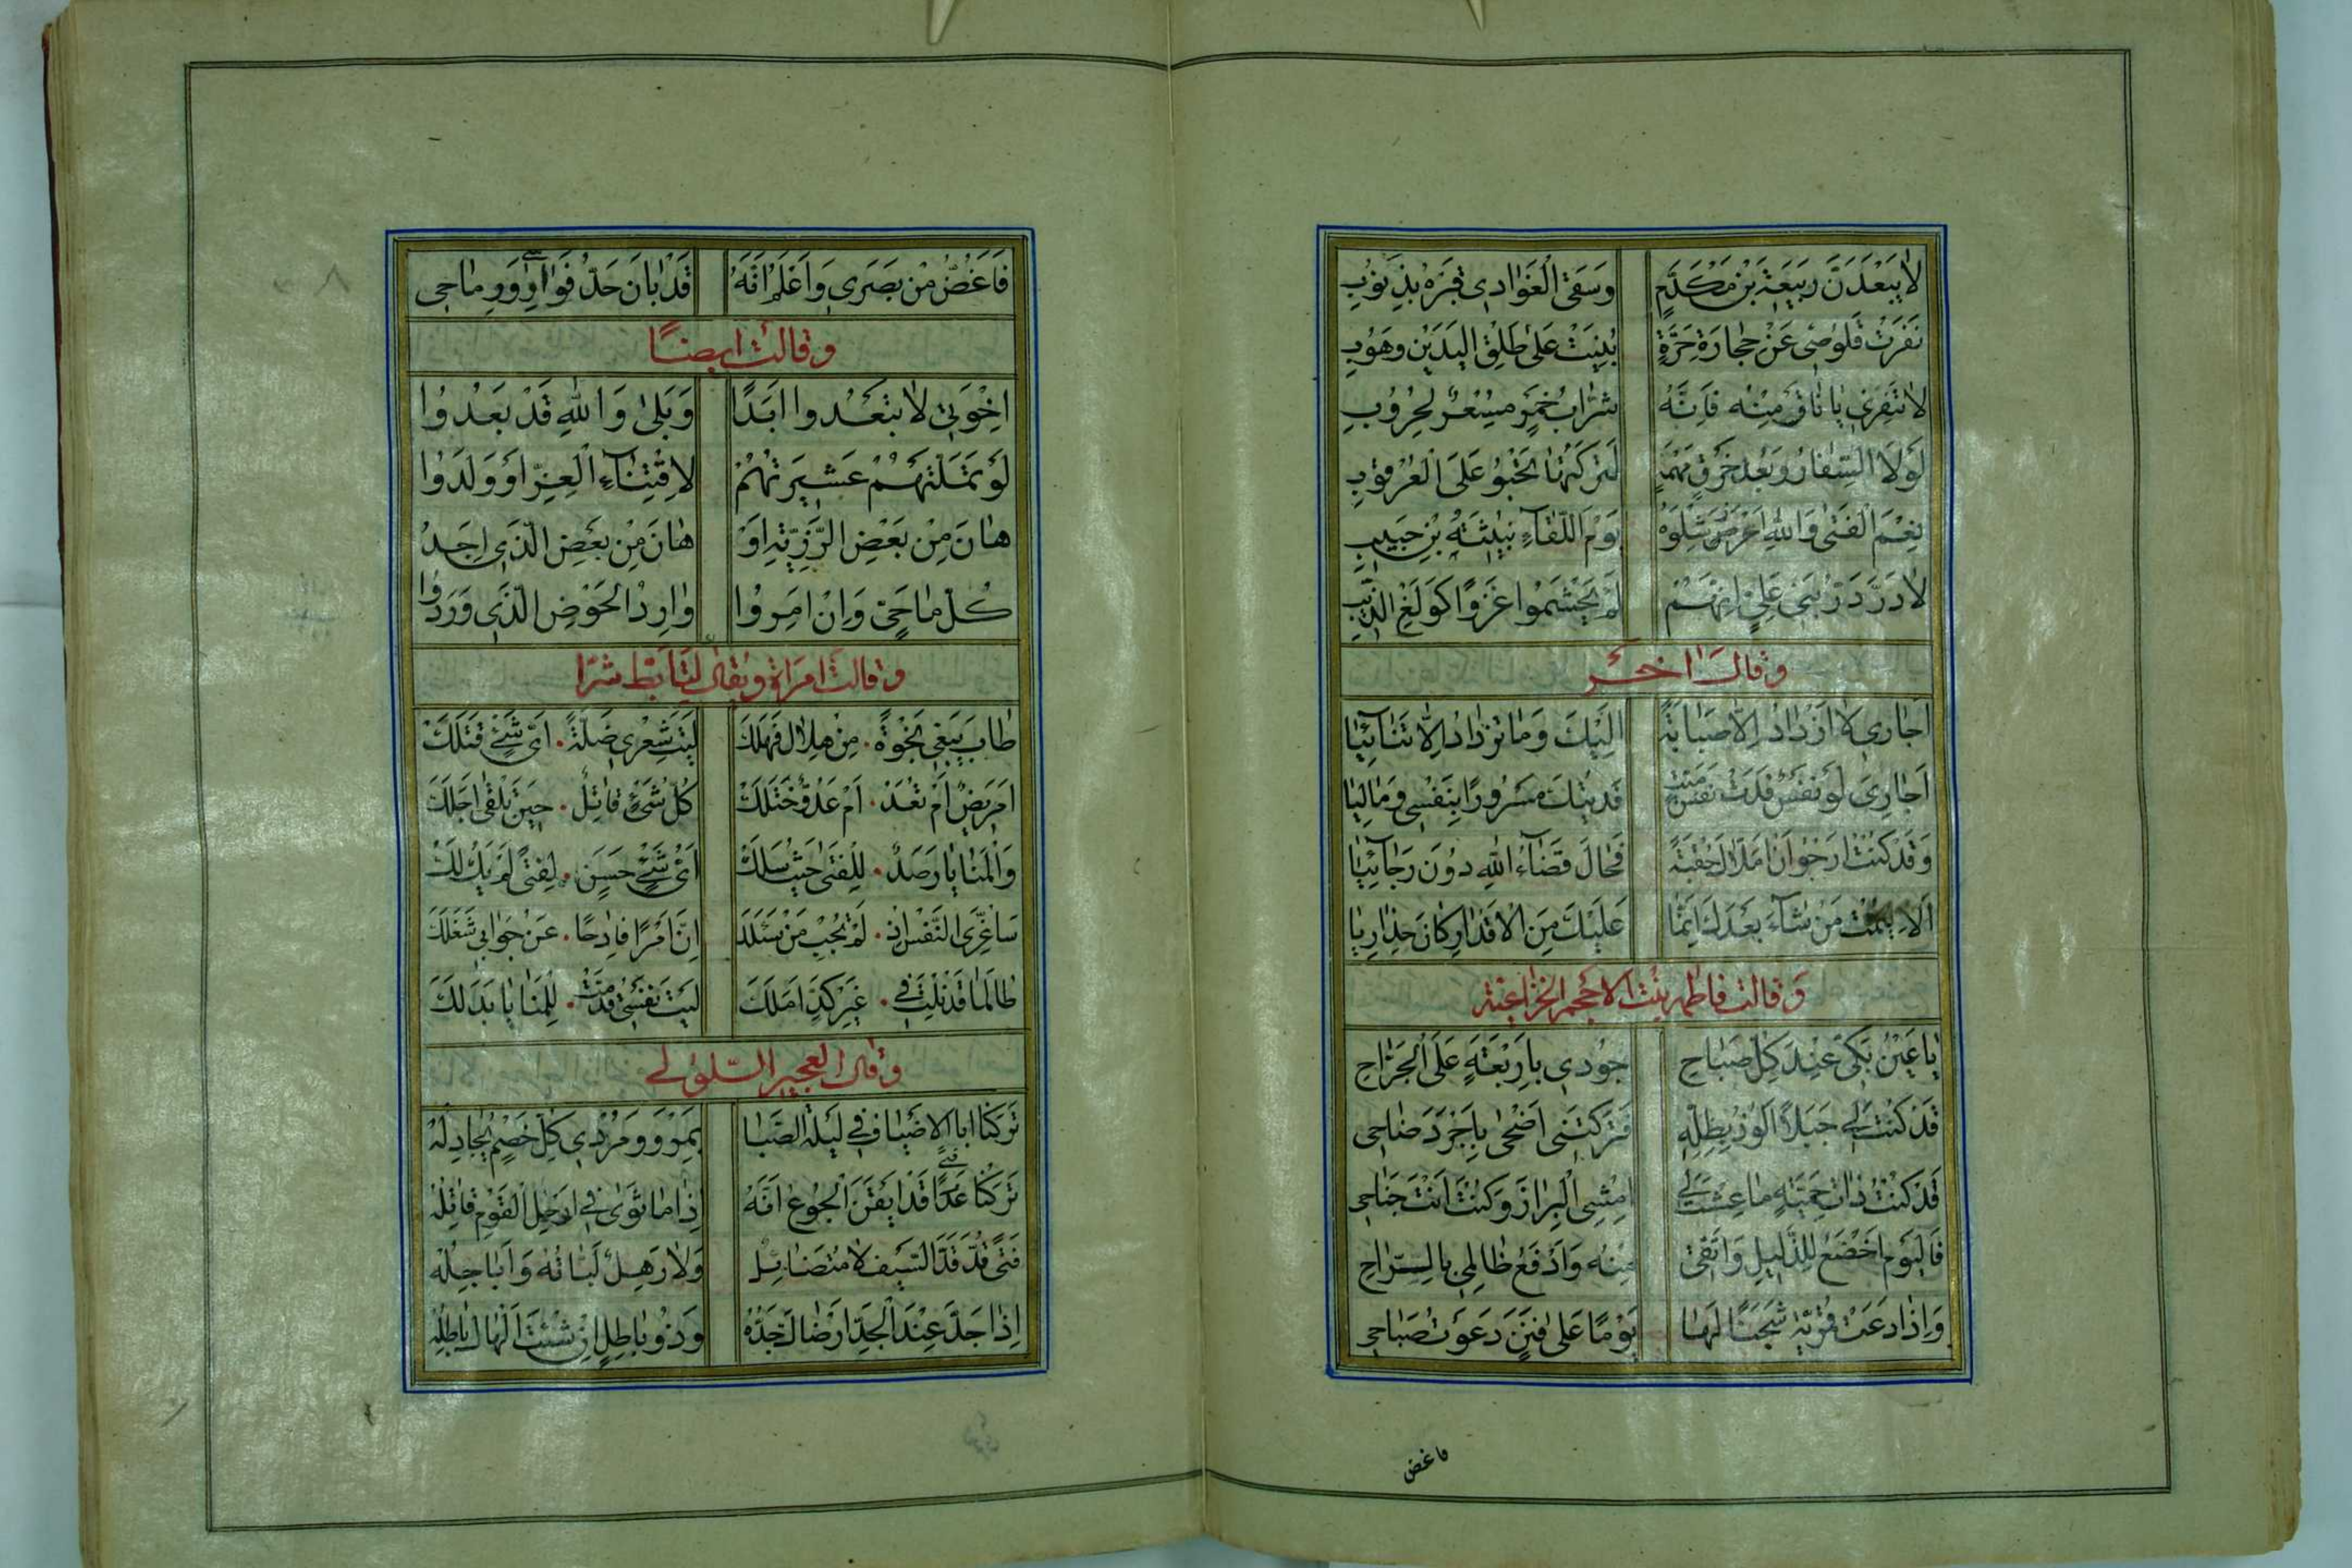 لا يَبْعَدَنَّ رَبيعَةُ بْنُ مُكَدَّمٍ وَسَقَى الْغَوَادِي قَبْرَهُ بِذَنُوبِ
نَفَرَتْ قَلُوصِي عَنْ حِجَارَةِ حَرَّةٍ بُنِيَتْ عَلَى طَلْقِ الْيَدَيْنِ وَهُوبِ
لا تَنْفِرِي يَا نَاقَ مِنْهُ فَإِنَّهُ شَرَّابُ خَمْرٍ مِسْعَرٌ لِحُرُوبِ
لَوْلا السِّفَارُ وَبُعْدُ خَرْقٍ مَهْمَهٍ لَتَرَكْتُهَا تَحْبُو عَلَى الْعُرْقُوبِ
نِعْمَ الْفَتَى وَاللهِ يَوْمَ اللِّقَاءِ نُبَيْشَةُ بْنُ حَبِيبِ
لا دَرَّ دَرُّ بَنِي عَلِيٍّ إِنَّهُمْ لَمْ يَجْشَمُوا غَزْوًا كَوَلْغِ الذِّيبِ
وَقَالَ آخَرُ
أَجَارِيَ لا أَزْدَادُ إِلاَّ صَبَابَةً إِلَيْكَ وَمَا تَزْدَادُ إِلاَّ تَنَائِيَا
أَجَارِيَ لَوْ نَفْسٌ فَدَتْ نَفْسَ مَيِّتٍ فَدَيْتُكَ مَسْرُورًا بِنَفْسِي وَمَالِيَا
وَقَدْ كُنْتُ أَرْجُو أَنْ أُمَلاَّكَ حِقْبَةً فَحَالَ قَضَاءُ اللهِ دُونَ رَجَائِيَا
أَلا لِيَمُتْ مَنْ شَاءَ بَعْدَكَ إِنَّمَا عَلَيْكَ مِنَ الأَقْدَارِ كَانَ حِذَارِيَا
وَقَالَتْ فَاطِمَةُ بِنْتُ الأَحْجَمِ الْخُزَاعِيَّةُ
يَا عَيْنُ بَكِّي عِنْدَ كُلِّ صَبَاحِ جُودِي بِأَرْبَعَةٍ عَلَى الْجَرَّاحِ
قَدْ كُنْتَ لِي جَبَلاً أَلُوذُ بِظِلِّهِ فَتَرَكْتَنِي أَضْحَى بِأَجْرَدَ ضَاحِي
قَدْ كُنْتُ ذَاتَ حَمِيَّةٍ مَا عِشْتَ لِي أَمْشِي الْبَرَازَ وَكُنْتَ أَنْتَ جَنَاحِي
فَالْيَوْمَ أَخْضَعُ لِلذَّلِيلِ وَأَتَّقِي مِنْهُ وَأَدْفَعُ ظَالِمِي بِالرَّاحِ
وَإِذَا دَعَتْ قُمْرِيَّةٌ شَجَنًا لَهَا يَوْمًا عَلَى فَنَنٍ دَعَوْتُ صَبَاحِي
فاغض
فَأَغُضُّ مِنْ بَصَرِي وَأَعْلَمُ أَنَّهُ قَدْ بَانَ حَدُّ فَوَارِسِي وَرِمَاحِي
وَقَالَتْ أَيْضًا
إِخْوَتِي لا تَبْعَدُوا أَبَدًا وَبَلَى وَاللهِ قَدْ بَعُدُوا
لَوْ تَمَلَّتْهُمْ عَشِيرَتُهُمْ لاقْتِنَاءِ الْعِزِّ أَوْ وَلَدُوا
هَانَ مِنْ بَعْضِ الرَّزِيَّةِ أَوْ هَانَ مِنْ بَعْضِ الَّذِي أَجِدُ
كُلُّ مَا حَيٍّ وَإِنْ أَمِرُوا وَارِدُ الْحَوْضِ الَّذِي وَرَدُوا
وَقَالَتِ امْرَأَةٌ وَيُقَالُ لِتَأَبَّطَ شَرًّا
طَافَ يَبْغِي نَجْوَةً . مِنْ هَلاكٍ فَهَلَكْ لَيْتَ شِعْرِي ضَلَّةً . أَيُّ شَيْءٍ قَتَلَكْ
أَمَرِيضٌ لَمْ تُعَدْ . أَمْ عَدُوٌّ خَتَلَكْ كُلُّ شَيْءٍ قَاتِلٌ . حِينَ تَلْقَى أَجَلَكْ
وَالْمَنَايَا رَصَدٌ . لِلْفَتَى حَيْثُ سَلَكْ أَيُّ شَيْءٍ حَسَنٍ . لِفَتًى لَمْ يَكُ لَكْ
سَأُعَزِّي النَّفْسَ إِذْ . لَمْ تُجِبْ مَنْ سَأَلَكْ إِنَّ أَمْرًا فَادِحًا . عَنْ جَوَابِي شَغَلَكْ
طَالَمَا قَدْ نِلْتَ فِي . غَيْرِ كَدٍّ أَمَلَكْ لَيْتَ نَفْسِي قُدِّمَتْ . لِلْمَنَايَا بَدَلَكْ
وَقَالَ الْعُجَيْرُ السَّلُولِي
تَرَكْنَا أَبَا الأَضْيَافِ فِي لَيْلَةِ الصَّبَا بِمَرْوٍ وَمِرْدَى كُلِّ خَصْمٍ يُجَادِلُهْ
تَرَكْنَا فَتًى قَدْ أَيْقَنَ الْجُوعُ أَنَّهُ إِذَا مَا ثَوَى فِي أَرْحُلِ الْقَوْمِ قَاتِلُهْ
فَتًى قُدَّ قَدَّ السَّيْفِ لا مُتَضَائِلٌ وَلا رَهِلٌ لَبَّاتُهُ وَأَبَاجِلُهْ
إِذَا جَدَّ عِنْدَ الْجِدِّ أَرْضَاكَ جِدُّهُ وَذُو بَاطِلٍ إِنْ شِئْتَ أَلْهَاكَ بَاطِلُهْ